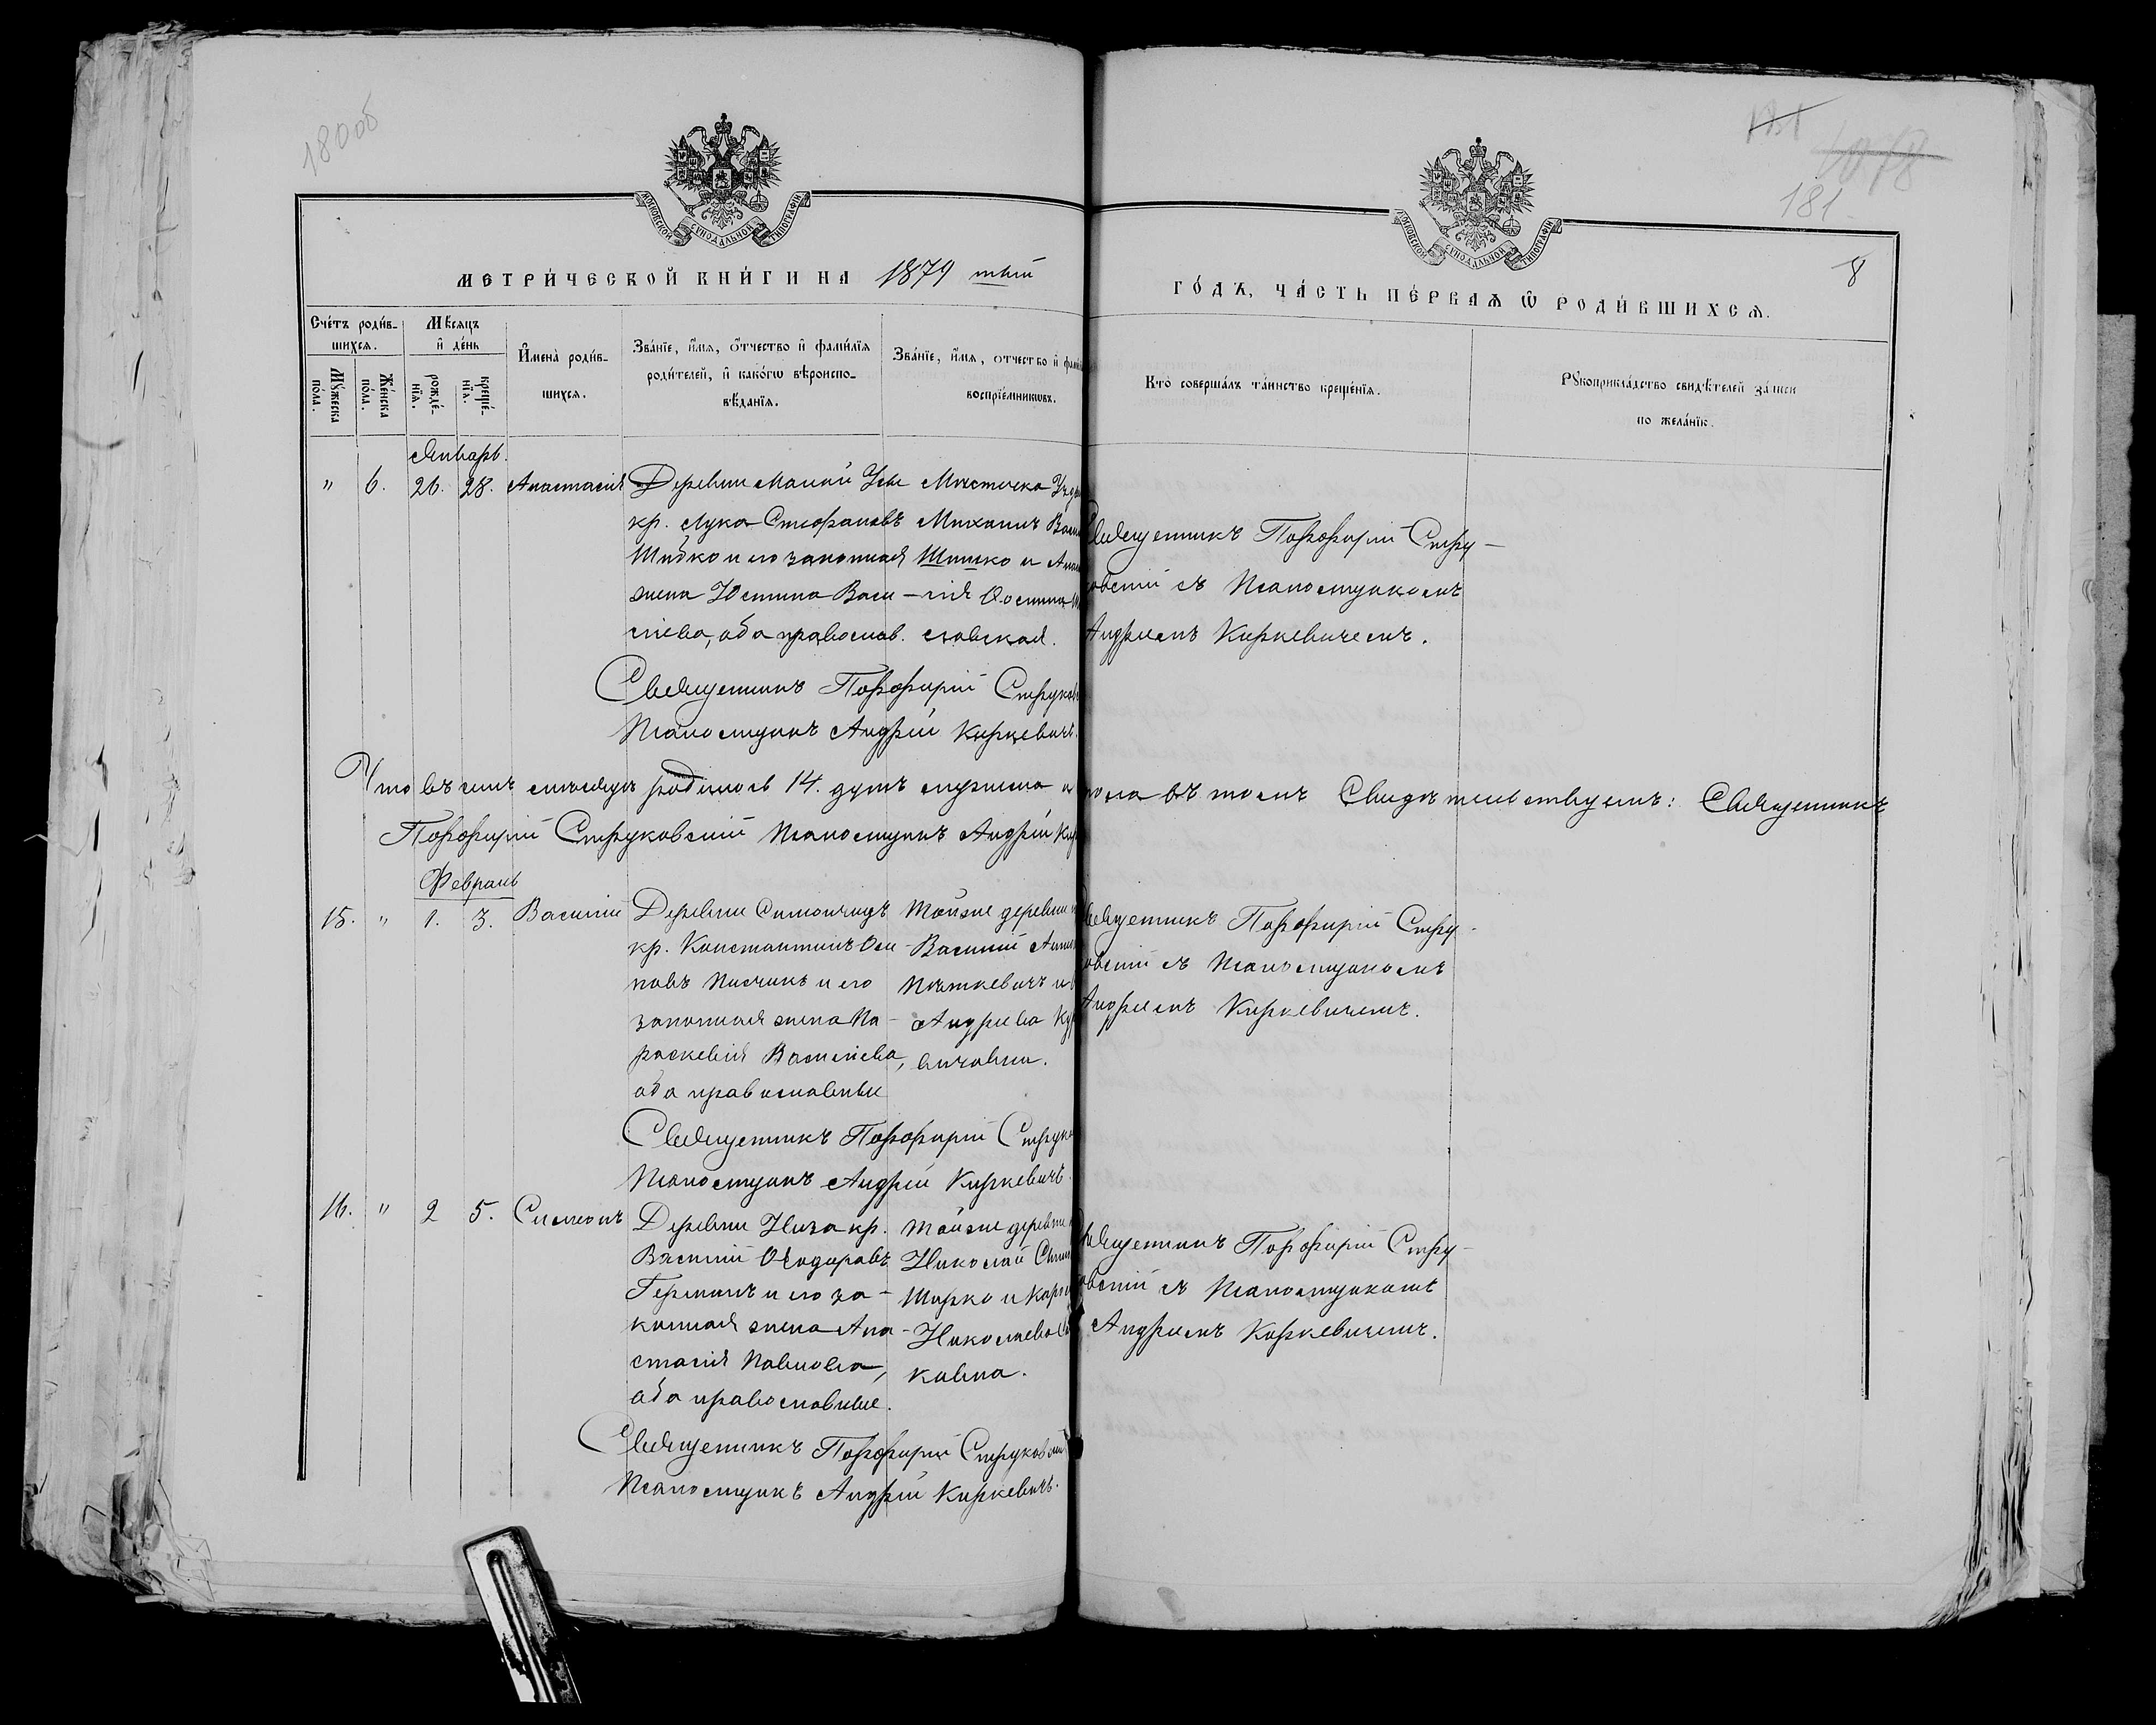 180об
181
8
МОСКОВСКОЙ СѴНОДАЛЬНОЙ ТИПОГРАФІИ
МОСКОВСКОЙ СѴНОДАЛЬНОЙ ТИПОГРАФІИ
МЕТРИ́ЧЕСКОЙ КНИ́ГИ НА 1879 тый
ГО́ДЪ, ЧА́СТЬ ПЕ́РВАѦ Ѿ РОДИ́ВШИХСѦ.
Сче́тъ роди́в-
шихсѧ.
Мꙋ́жеска по́ла.
Же́нска по́ла.
Мѣ́сѧцъ
и҆ де́нь
рожде́-нїѧ.
креще́-нїѧ.
И҆мена̀ роди́в-
шихсѧ.
Зва́нїе, и҆́мѧ, ѻ҆́тчество и҆ фами́лїѧ
роди́телей, и҆ како́гѡ вѣроиспо-
вѣ́данїѧ.
Зва́нїе, и҆́мѧ, ѻтчество и҆
воспрїе́мникѡвъ.
Кто̀ соверша́лъ та́инство креще́нїѧ.
Рꙋкоприкла́дство свидѣ́телей за́писи
по жела́нїю.
Январь.
" 6. 26. 28. Анастасія
Деревни Малой Усы
кр. Лука Стефановъ
Шибко и его законная
жена Юстина Васи-
лiева, оба православ.
Мѣстечка
Михаилъ
Шишко и
Священникъ Порфирій Стру-
ковскій съ Псаломщикомъ
Андреемъ Киркевичемъ.
Священникъ Порфирій
Псаломщикъ Андрей Киркевичъ.
Что въ семъ мѣсяцѣ родилось 14. душъ мужеска и
пола въ томъ Свидѣтельствуемъ: Священникъ
Порфирій Струковскій Псаломщикъ Андрей
Февраль
15. " 1. 3. Василій
Деревни
кр. Константинъ Оси-
повъ и его
законная жена Па-
раскевія Васильева,
оба православные
Тойже деревни
Василій
Пяткевичъ и
Андреева
Священникъ Порфирій Стру-
ковскій съ Псаломщикомъ
Андреемъ Киркевичемъ.
Священникъ Порфирій
Псаломщикъ Андрей Киркевичъ.
16. " 2 5. Симеонъ
Деревни Низа кр.
Василій Ѳеодоровъ
Германъ и его за-
конная жена Ана-
стасія Павлова,
оба православные.
Тойже деревни
Николай
Ширко и
Николаева
ковна.
Священникъ Порфирій Стру-
ковскій съ Псаломщикомъ
Андреемъ Киркевичемъ.
Священникъ Порфирій Струковскій
Псаломщикъ Андрей Киркевичъ.